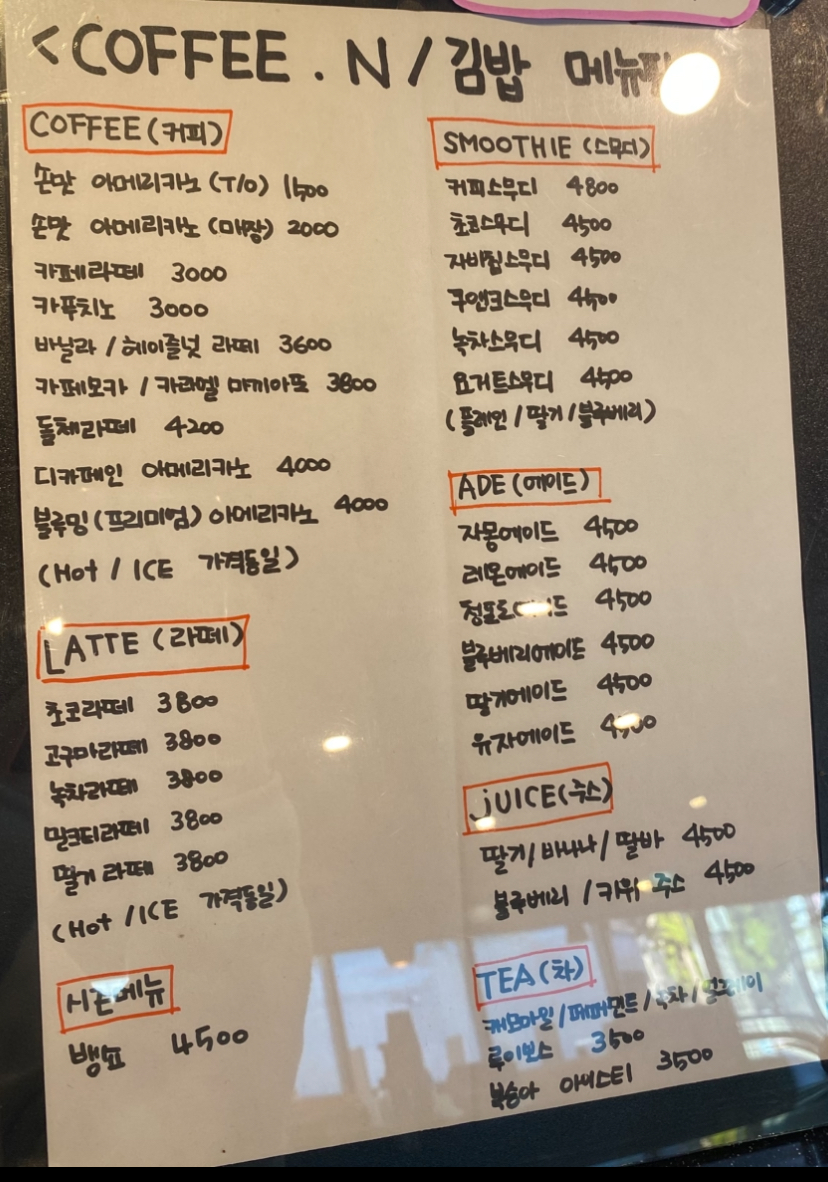 <COFFEE . N / 김밥 메뉴판
COFFEE (커피)
손맛 아메리카노 (T/O) 1500
손맛 아메리카노 (매장) 2000
카페라떼 3000
카푸치노 3000
바닐라 / 헤이즐넛 라떼 3600
카페모카 / 카라멜 마끼아또 3800
돌체라떼 4200
디카페인 아메리카노 4000
블루밍 (프리미엄) 아메리카노 4000
(Hot / ICE 가격동일)
LATTE (라떼)
초코라떼 3800
고구마라떼 3800
녹차라떼 3800
밀크티라떼 3800
딸기 라떼 3800
(Hot / ICE 가격동일)
시즌메뉴
뱅쇼 4500
SMOOTHIE (스무디)
커피스무디 4800
초코스무디 4500
자바칩스무디 4500
쿠앤크스무디 4500
녹차스무디 4500
요거트스무디 4500
(플레인 / 딸기 / 블루베리)
ADE (에이드)
자몽에이드 4500
레몬에이드 4500
청포도에이드 4500
블루베리에이드 4500
딸기에이드 4500
유자에이드 4500
jUICE (주스)
딸기 / 바나나 / 딸바 4500
블루베리 / 키위 주스 4500
TEA (차)
캐모마일 / 페퍼민트 / 녹차 / 얼그레이
루이보스 3500
복숭아 아이스티 3500